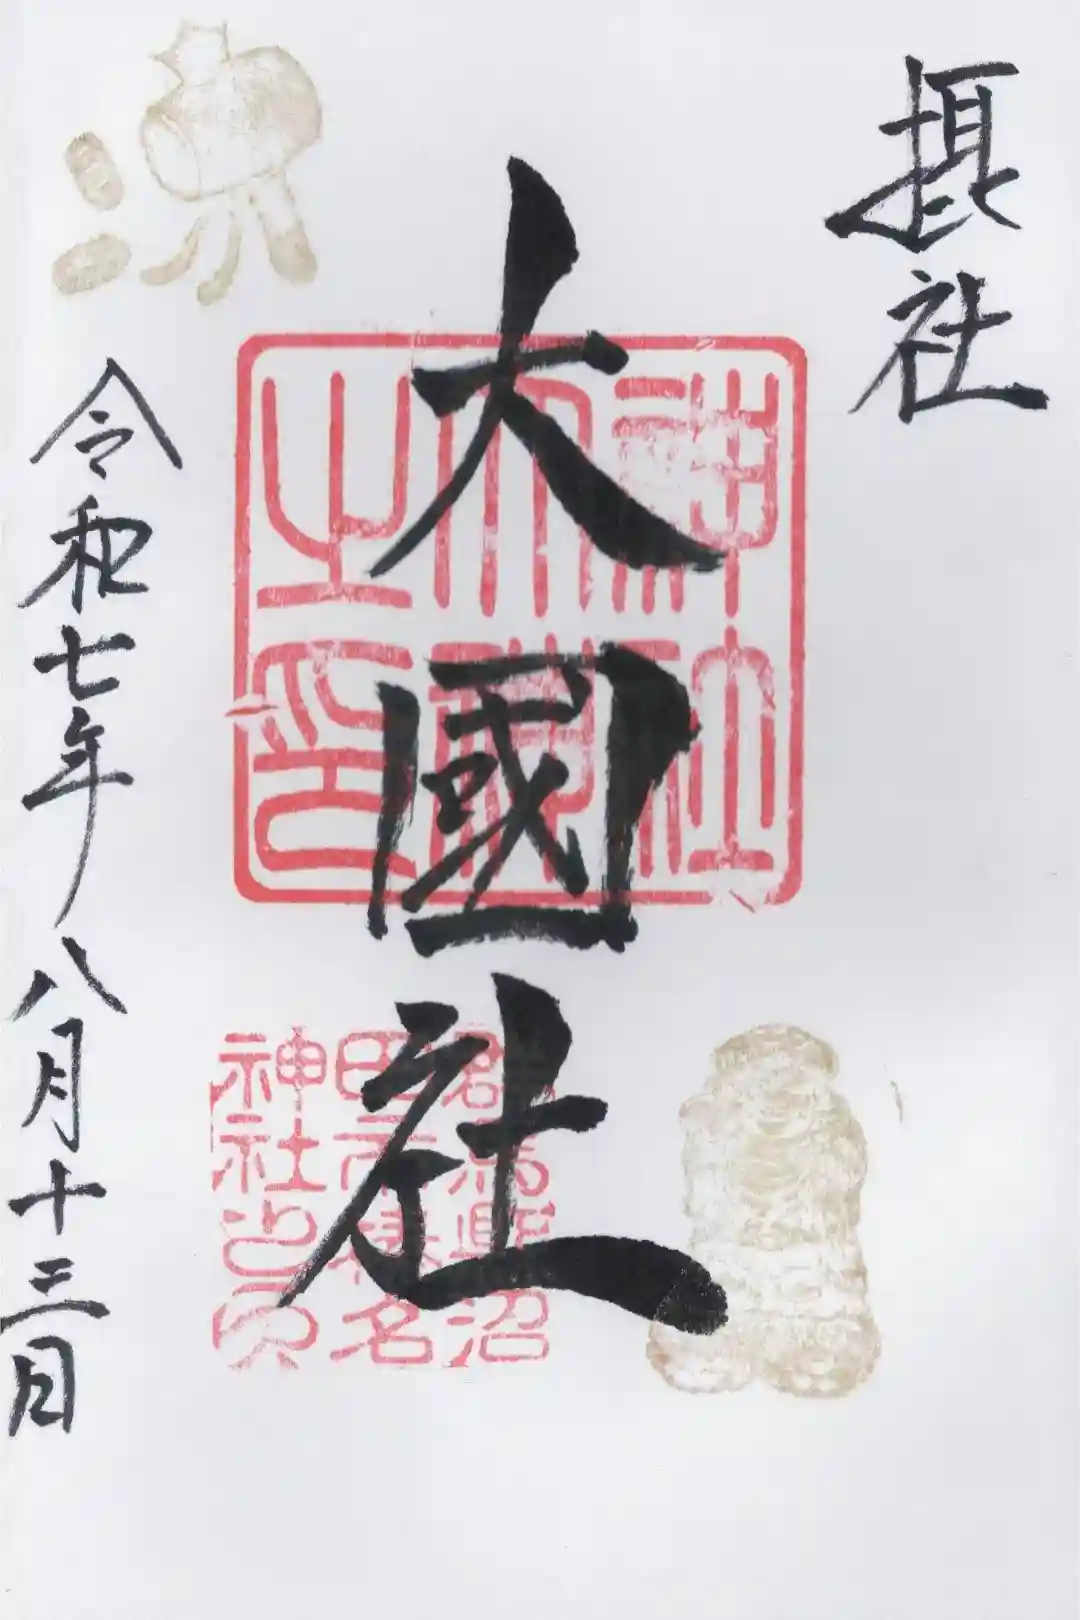 摂社
大國社
令和七年八月十三日
神社
之印
群馬縣沼
田市榛名
神社之印